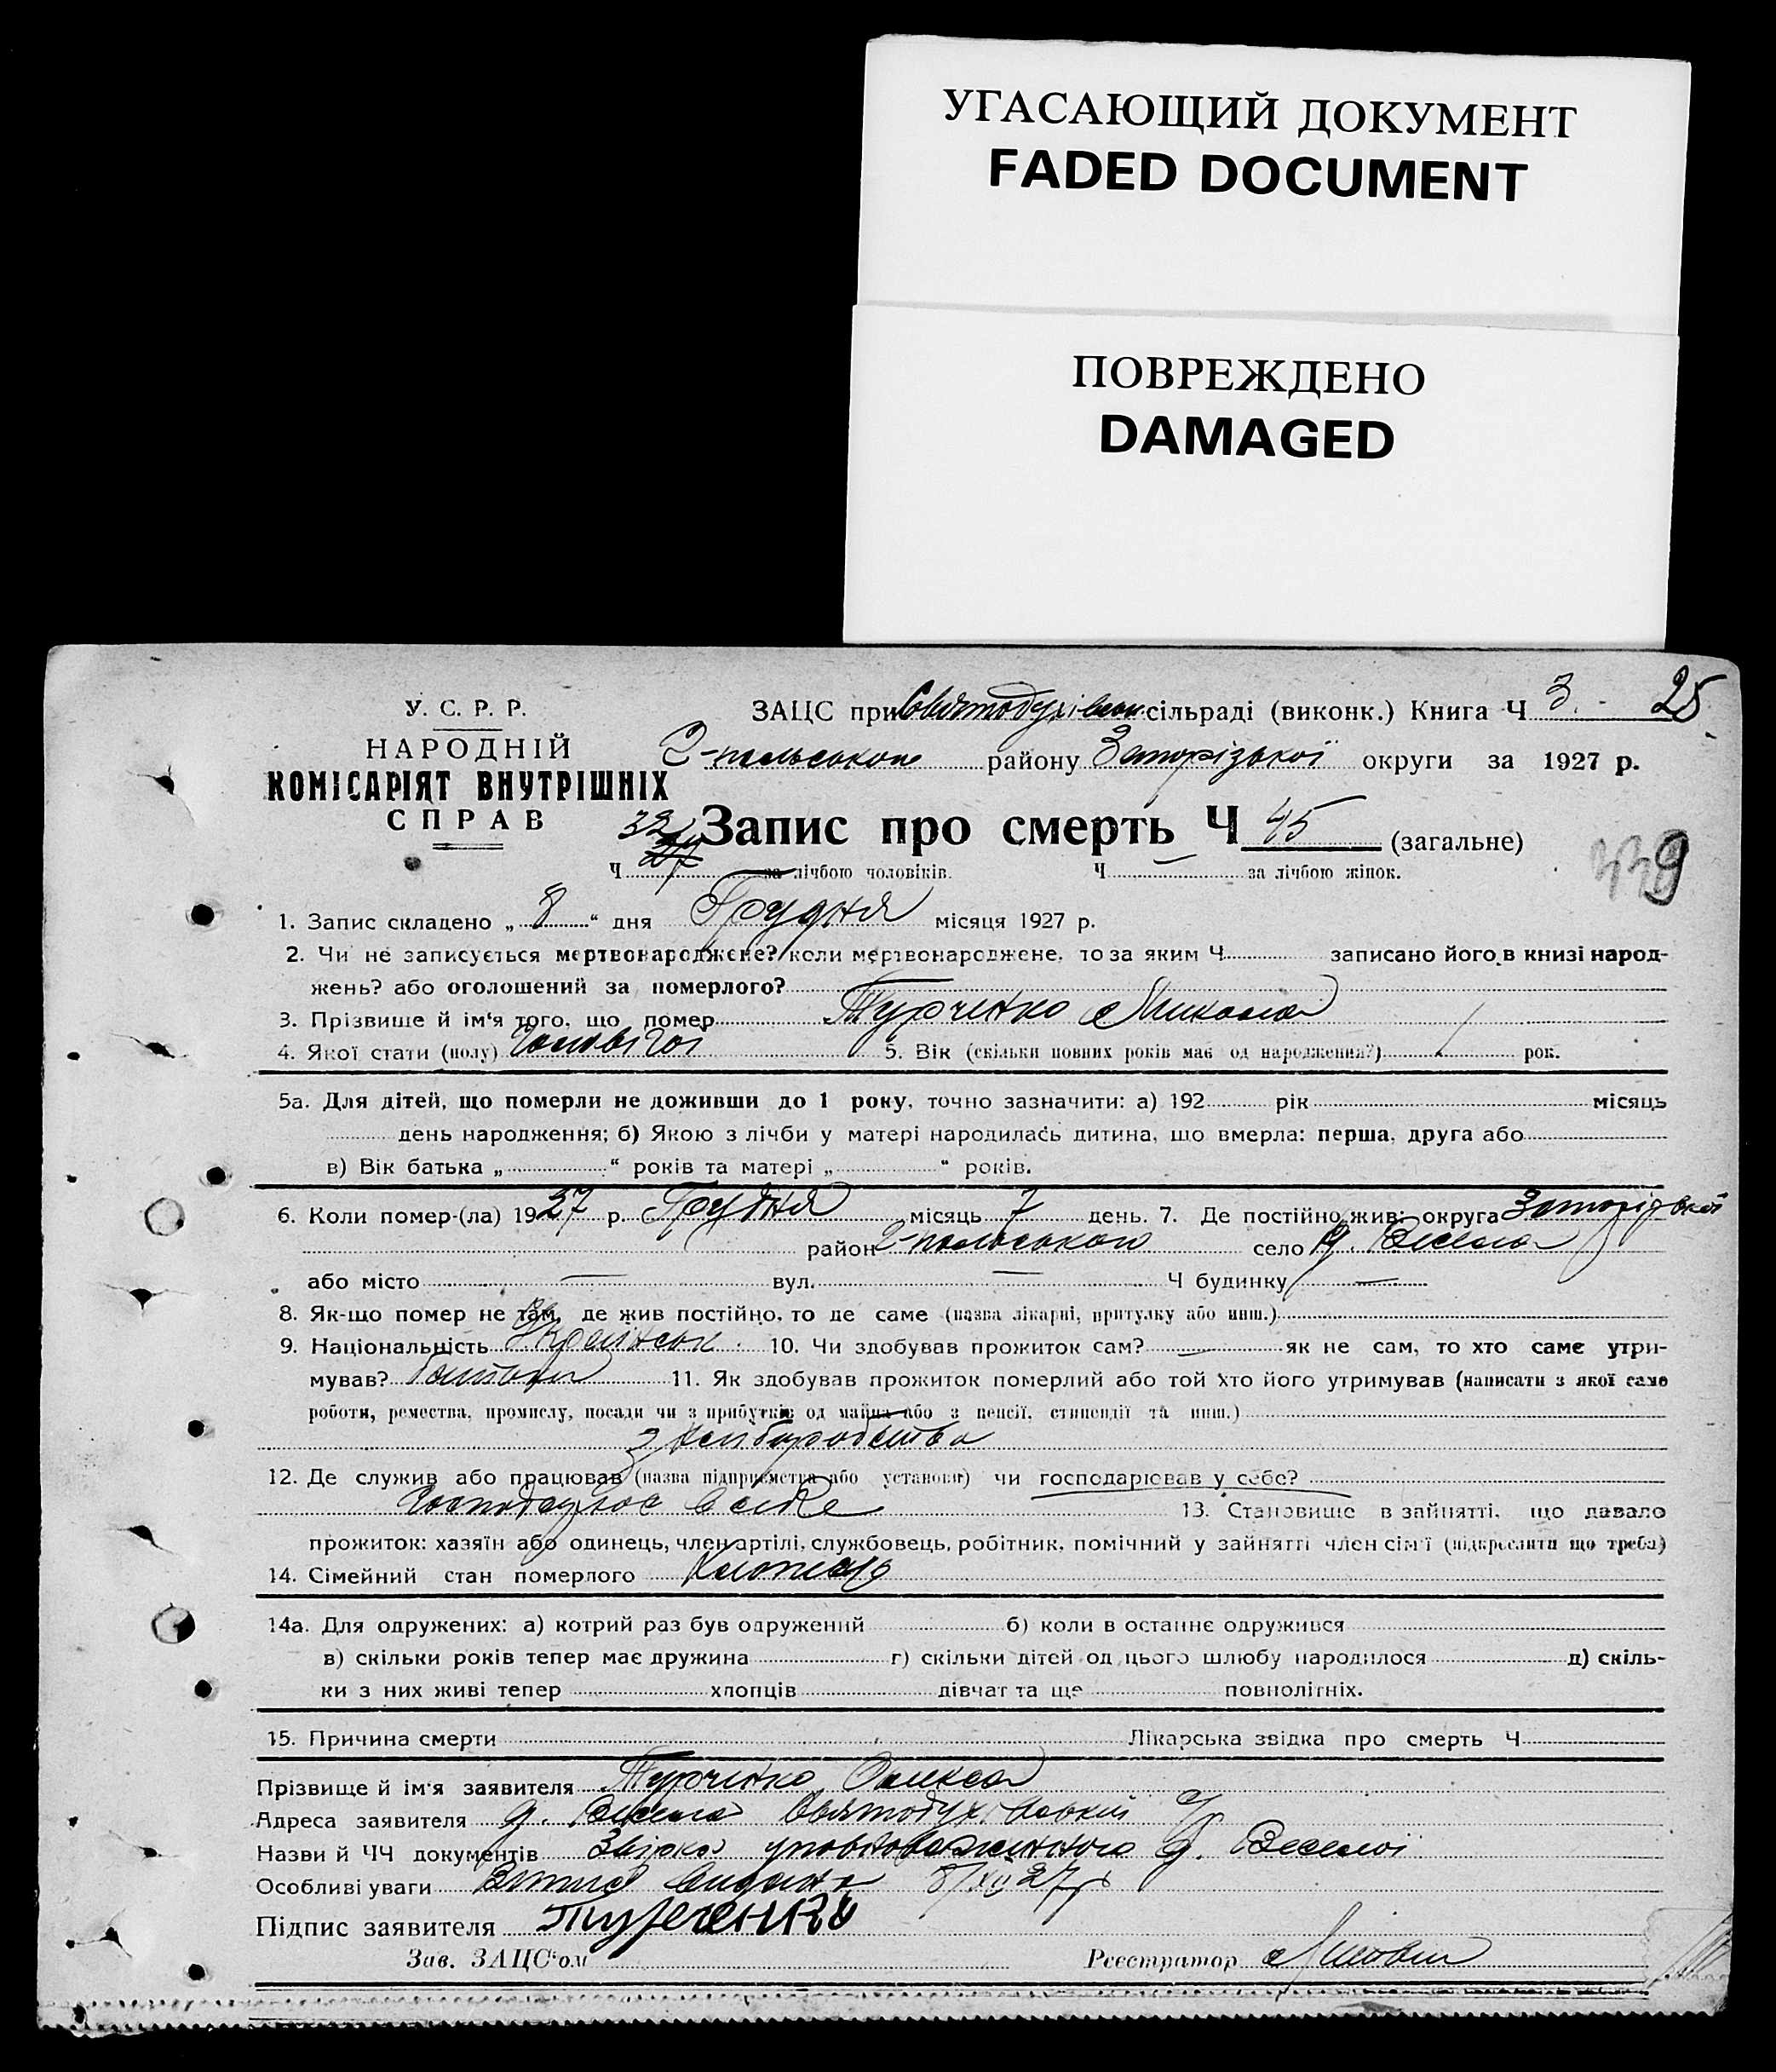 УГАСАЮЩИЙ ДОКУМЕНТ
FADED DOCUMENT
ПОВРЕЖДЕНО
DAMAGED
У. С. Р. Р.
НАРОДНІЙ
КОМІСАРІЯТ ВНУТРІШНІХ
СПРАВ
ЗАЦС при Святодухівськ. сільраді (виконк.) Книга Ч 3. - 25
2-польського району Запорізької округи за 1927 р.
Запис про смерть Ч 45 (загальне)
339
Ч 32 за лічбою чоловіків. Ч — за лічбою жінок.
1. Запис складено „ 8 “ дня Грудня місяця 1927 р.
2. Чи не записується мертвонароджене? коли мертвонароджене, то за яким Ч записано його в книзі народ-
жень? або оголошений за померлого?
3. Прізвище й ім'я того, що помер Турченко Микола
4. Якої стати (полу) Чоловічої 5. Вік (скільки повних років має од народження?) 1 рок.
5а. Для дітей, що померли не доживши до 1 року, точно зазначити: а) 192 рік місяць
день народження; б) Якою з лічби у матері народилась дитина, що вмерла: перша, друга або
в) Вік батька „ “ років та матері „ “ років.
6. Коли помер-(ла) 1927 р. Грудня місяць 7 день. 7. Де постійно жив: округа Запорізької
район 2-польського село д. Весела
або місто — вул. — Ч будинку —
8. Як-що помер не там, де жив постійно, то де саме (назва лікарні, притулку або инш.)
9. Національність Українськ. 10. Чи здобував прожиток сам? — як не сам, то хто саме утри-
мував? батько 11. Як здобував прожиток померлий або той хто його утримував (написати з якої саме
роботи, ремества, промислу, посади чи з прибутків од майна або з пенсії, стипендії та инш.)
з хліборобства
12. Де служив або працював (назва підприємства або установи) чи господарював у себе?
Господарював в себе 13. Становище в зайнятті, що давало
прожиток: хазяїн або одинець, член артілі, службовець, робітник, помічний у зайнятті член сім'ї (підкреслити що треба)
14. Сімейний стан померлого Холостяк
14а. Для одружених: а) котрий раз був одружений б) коли в останнє одружився
в) скільки років тепер має дружина г) скільки дітей од цього шлюбу народилося д) скіль-
ки з них живі тепер хлопців дівчат та ще повнолітніх.
15. Причина смерти Лікарська звідка про смерть Ч
Прізвище й ім'я заявителя Турченко Олекса
Адреса заявителя д. Весела Святодухівської с/р
Назви й ЧЧ документів Звідка уповноваженного д. Веселої
Особливі уваги Витяг видано 8/XII 27 р
Підпис заявителя Турченко
Зав. ЗАЦС'ом Реєстратор